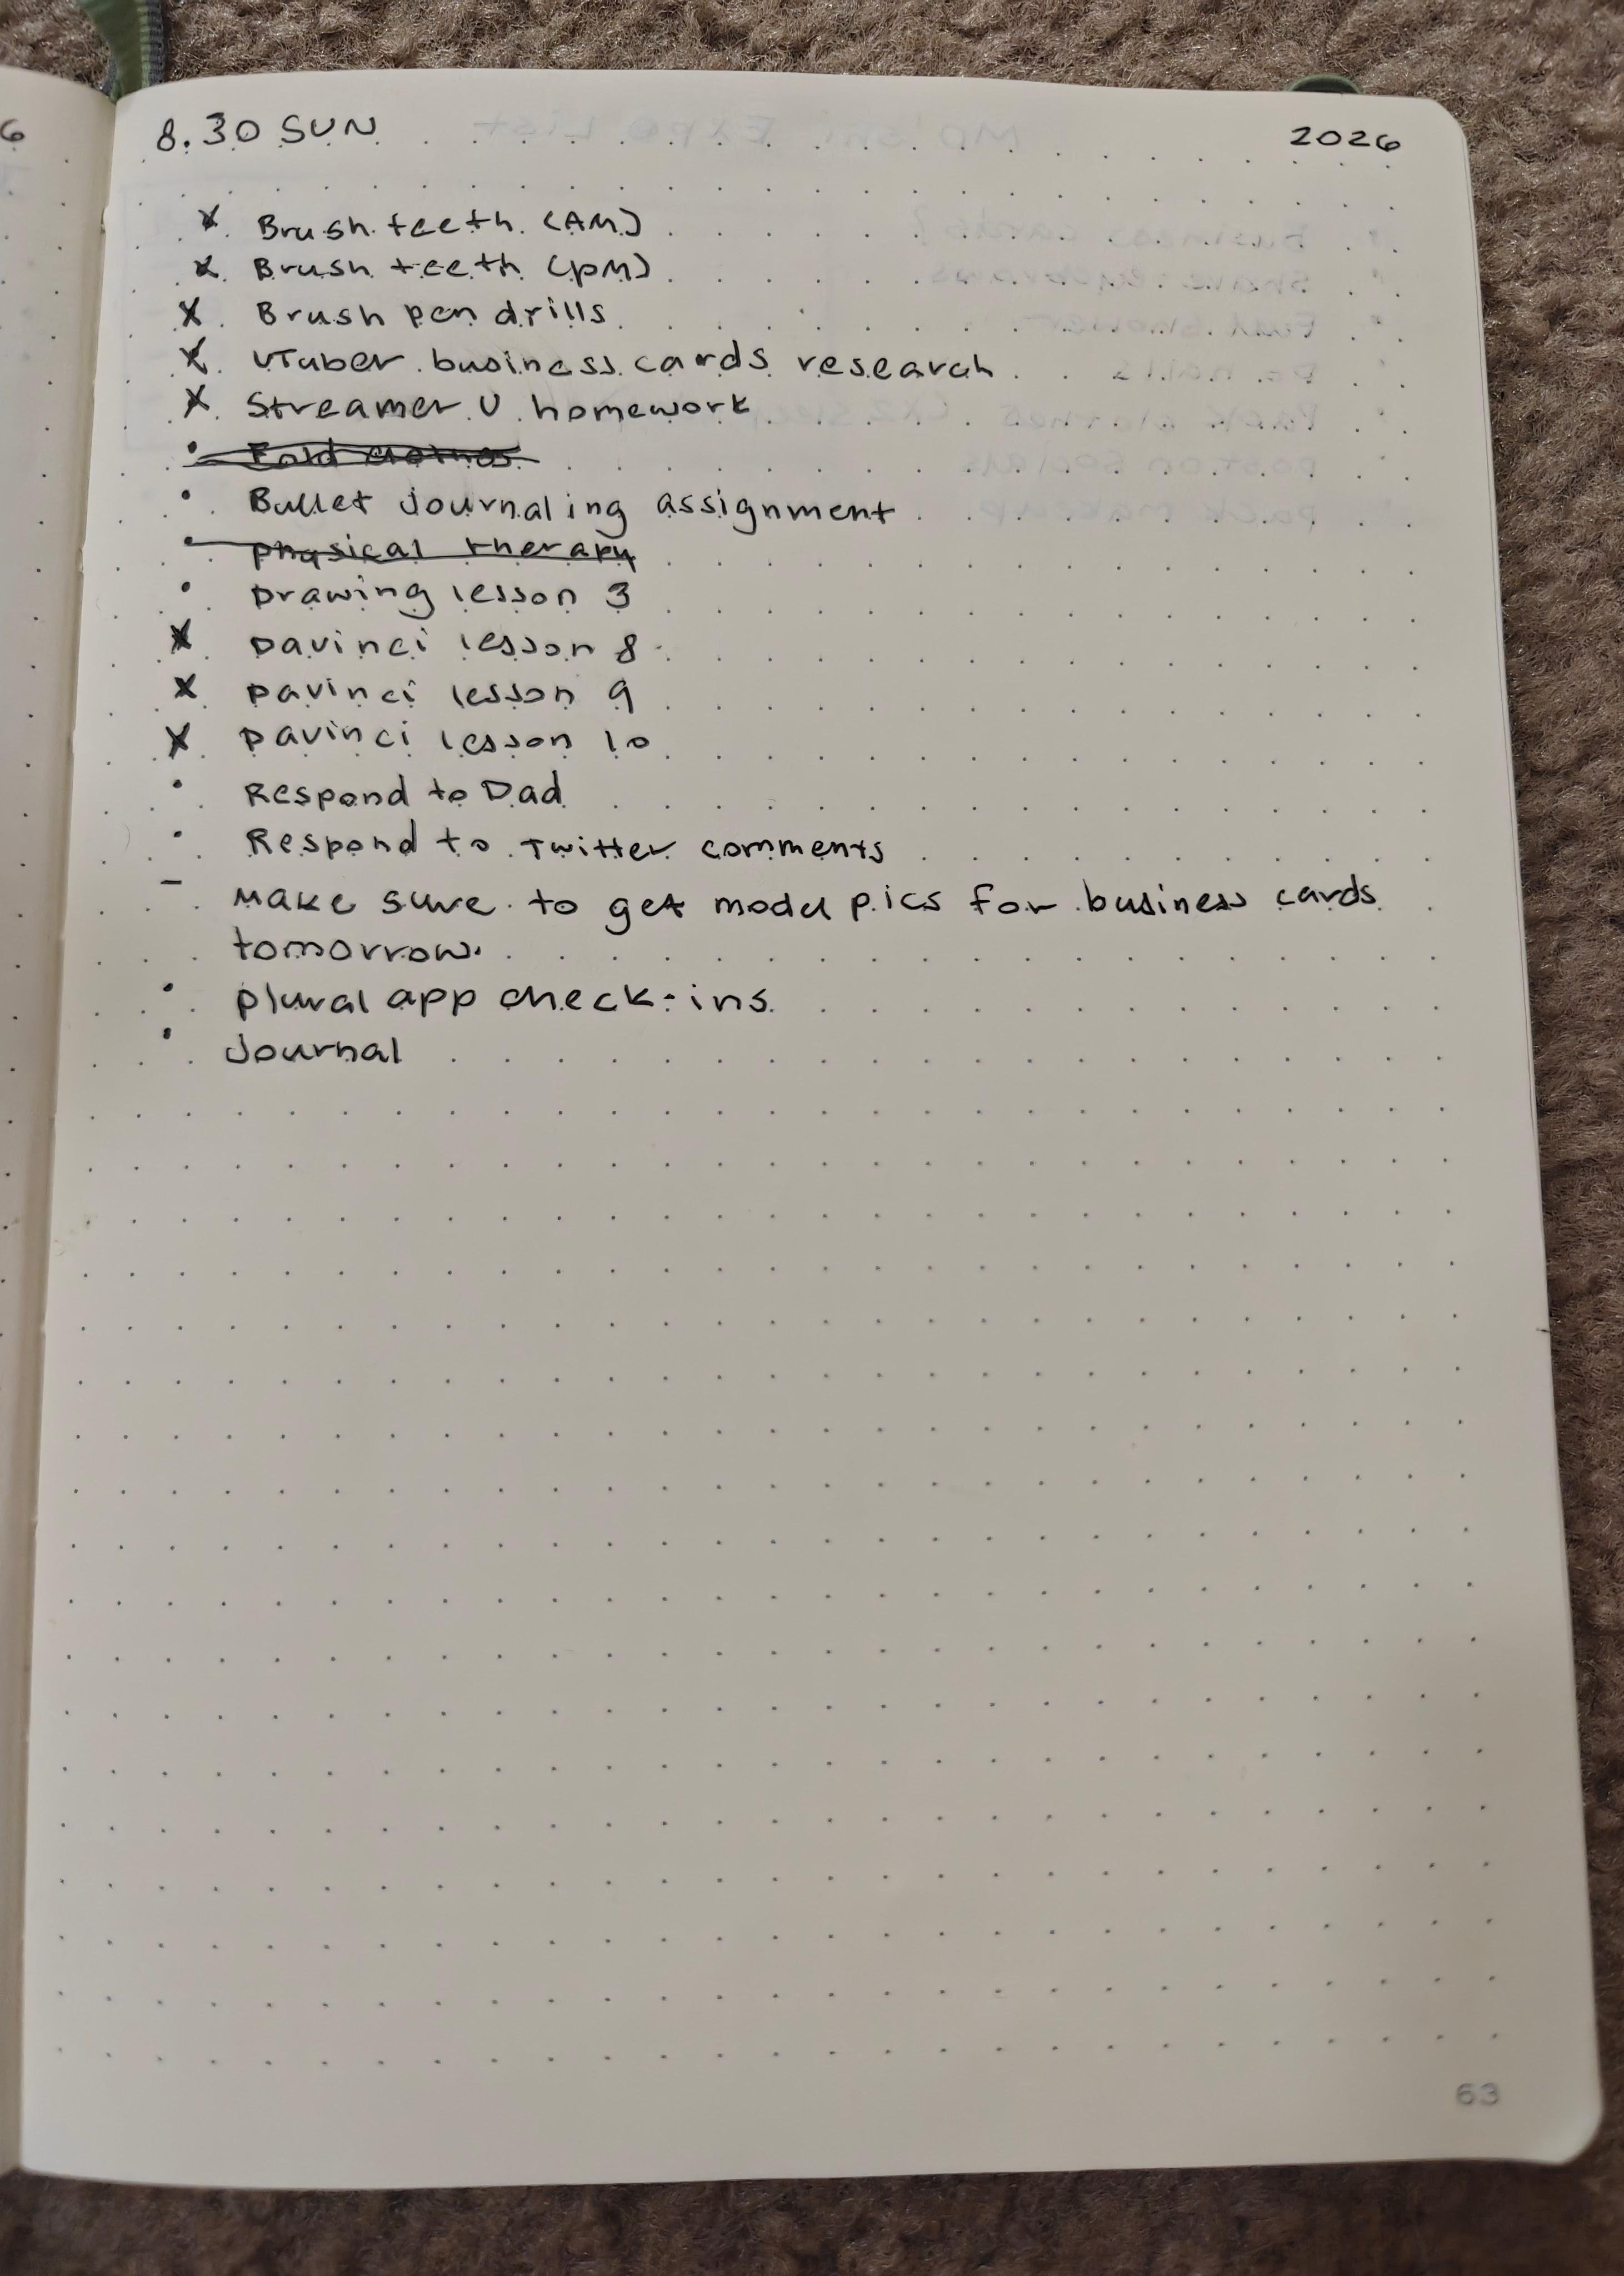 6
8.30 SUN
2026
x Brush teeth (AM)
x Brush teeth (PM)
x Brush pen drills
x VTuber business cards research
x Streamer U homework
• Fold clothes
• Bullet Journaling assignment
• physical therapy
• Drawing lesson 3
x Davinci lesson 8
x Davinci lesson 9
x Davinci lesson 10
• Respond to Dad
• Respond to Twitter comments
– Make sure to get model pics for business cards
tomorrow.
• plural app check-ins
• Journal
63